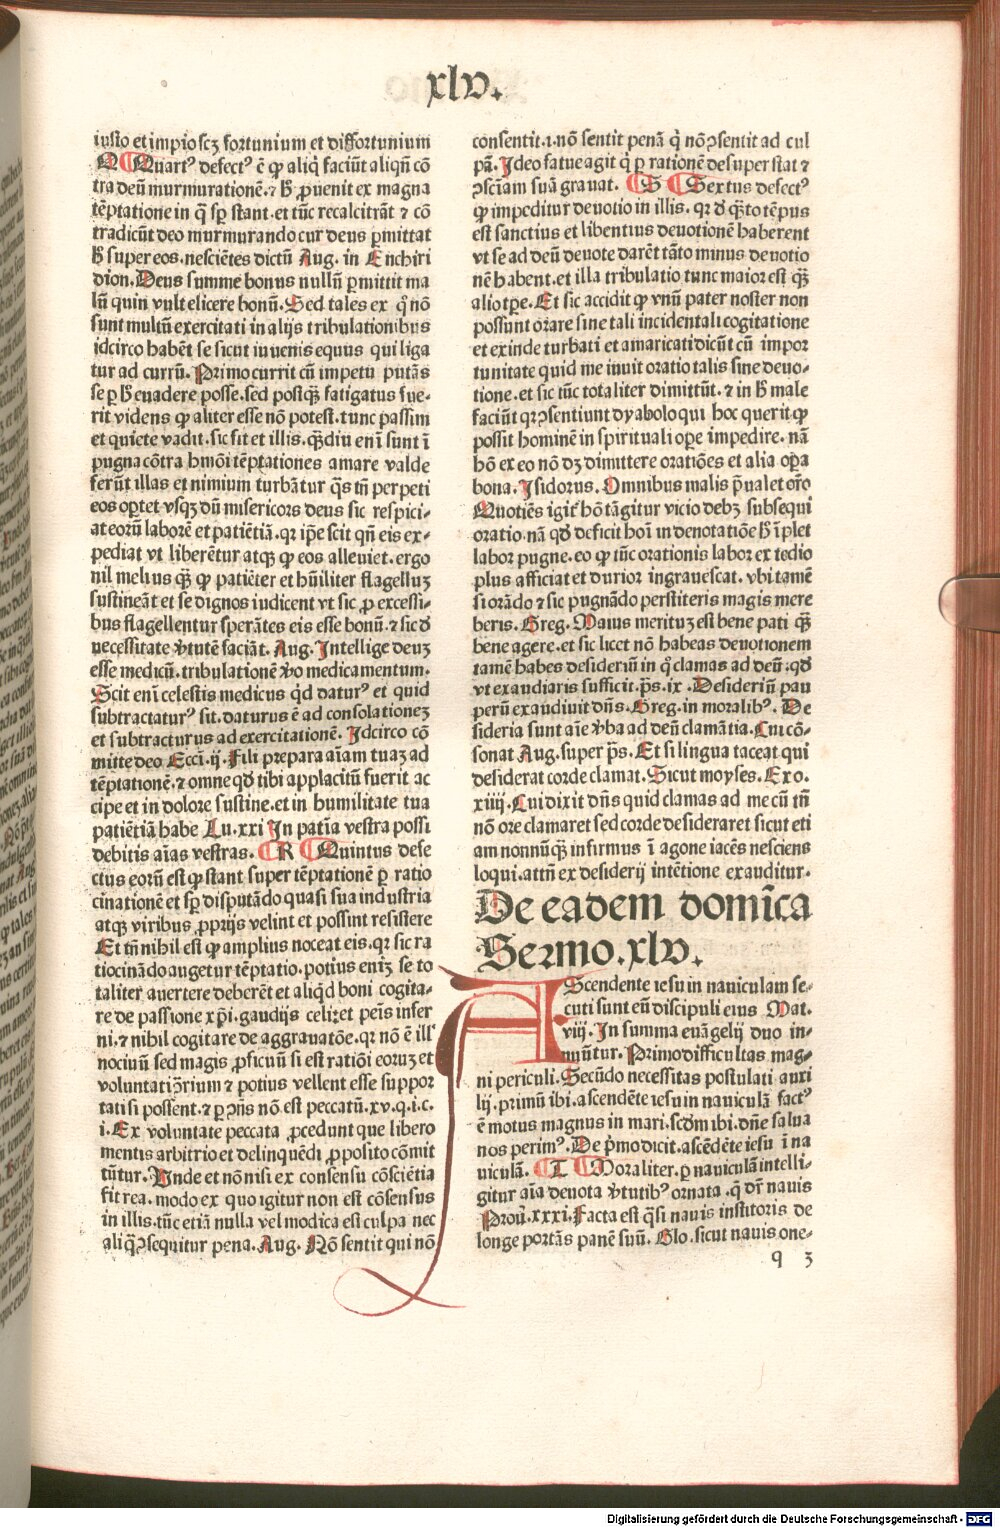 xlv.
iusto et impio scz fortunium et diffortunium
Q Quartꝰ defectꝰ ē ꝙ aliqͥ faciūt aliqn̄ cō
tra deū murmurationē. ⁊ hͦ ꝓuenit ex magna
tēptatione in qͣ sꝑ stant. et tūc recalcitrāt ⁊ cō
tradicūt deo murmurando cur deus ꝑmittat
hͦ super eos. nesciētes dictū Aug. in Enchiri
dion. Deus summe bonus nullū ꝑmittit ma
lū quin vult elicere bonū. Sed tales ex qͦ nō
sunt multū exercitati in alijs tribulationibus
idcirco habēt se sicut iuuenis equus qui liga
tur ad currū. Primo currit cū impetu putās
se ꝑ hͦ euadere posse. sed postqꝫ fatigatus fue-
rit videns ꝙ aliter esse nō potest. tunc passim
et quiete vadit. sic fit et illis. qꝫdiu enī sunt ī
pugna cōtra hmōi tēptationes amare valde
ferūt illas et nimium turbātur qͥs tn̄ perpeti
eos oꝑtet vsqꝫ dū misericors deus sic respici-
at eorū laborē et patiētiā. qꝛ ip̄e scit qn̄ eis ex-
pediat vt liberētur atqꝫ ꝙ eos alleuiet. ergo
nil melius qꝫ ꝙ patiēter et hūiliter flagelluꝫ
sustineāt et se dignos iudicent vt sic ꝓ excessi-
bus flagellentur sperātes eis esse bonū. ⁊ sic d̄
necessitate v̄tutē faciāt. Aug. Intellige deuꝫ
esse medicū. tribulationē v̄o medicamentum.
Scit enī celestis medicus qͥd daturꝰ et quid
subtractaturꝰ sit. daturus ē ad consolationeꝫ
et subtracturus ad exercitationē. Idcirco cō
mitte deo Ecci. ij. Fili prepara aīam tuaꝫ ad
tēptationē. ⁊ omne qd̄ tibi applacitū fuerit ac
cipe et in dolore sustine. et in humilitate tua
patiētiā habe Lu. xxi In patīa vestra possi
debitis aīas vestras. R Quintus defe
ctus eorū est ꝙ stant super tēptationē ꝑ ratio
cinationē et sꝑ disputādo quasi sua industria
atqꝫ viribus ꝓprijs velint et possint resistere
Et tn̄ nihil est ꝙ amplius noceat eis. qꝛ sic ra
tiocinādo augetur tēptatio. potius enīꝫ se to
taliter auertere deberēt et aliqͥd boni cogita-
re de passione xp̄i. gaudijs celi ꝫet peīs infer
ni. ⁊ nihil cogitare de aggrauatōe. qꝛ nō ē ill'
nociuū sed magis ꝓficuū si est ratiōi eoruꝫ et
voluntati ꝯtrium ⁊ potius vellent esse suppor
tati si possent. ⁊ ꝑ ꝯn̄s nō est peccatū. xv. q. i. c.
i. Ex voluntate peccata ꝓcedunt que libero
mentis arbitrio et delinquēdi ꝓposito cōmit
tūtur. Unde et nō nisi ex consensu cōsciētia
fit rea. modo ex quo igitur non est cōsensus
in illis. tūc etiā nulla vel modica est culpa nec
aliqͣ ꝯsequitur pena. Aug. Nō sentit qui nō
consentit. i. nō sentit penā qͥ nō ꝯsentit ad cul
pā. Ideo fatue agit qͥ ꝑ rationē desuper stat ⁊
ꝯsciam suā grauat. S Sextus defectꝰ
ꝙ impeditur deuotio in illis. qꝛ d̄ qͣto tēpus
est sanctius et libentius deuotionē haberent
vt se ad deū deuote darēt tāto minus deuotio
nē habent. et illa tribulatio tunc maior est qꝫ
alio tꝑe. Et sic accidit ꝙ vnū pater noster non
possunt orare sine tali incidentali cogitatione
et exinde turbati et amaricati dicūt cū impor
tunitate quid me iuuit oratio talis sine deuo-
tione. et sic tūc totaliter dimittūt. ⁊ in hͦ male
faciūt qꝛ ꝯsentiunt dyabolo qui hoc querit ꝙ
possit hominē in spirituali oꝑe impedire. nā
hō ex eo nō dꝫ dimittere oratiōes et alia oꝑa
bona. Isidorus. Omnibus malis p̄ualet oro
Quotiēs igit̉ hō tāgitur vicio debꝫ subsequi
oratio nā qd̄ deficit hoī in denotatiōe hͦ īplet
labor pugne. eo ꝙ tūc orationis labor ex tedio
plus afficiat et durior ingrauescat. vbi tamē
si orādo ⁊ sic pugnādo perstiteris magis mere
beris. Greg. Maius merituꝫ est bene pati qꝫ
bene agere. et sic licet nō habeas deuotionem
tamē habes desideriū in qͦ clamas ad deū. qd̄
vt exaudiaris sufficit. p̄s. ix. Desideriū pau
perū exaudiuit dn̄s. Greg. in moralibꝰ. De
sideria sunt aīe v̄ba ad deū clamātia. Cui cō-
sonat Aug. super p̄s. Et si lingua taceat qui
desiderat corde clamat. Sicut moyses. Exo.
xiiij. Cui dixit dn̄s quid clamas ad me cū tn̄
nō ore clamaret sed corde desideraret sicut eti
am nonnūqꝫ infirmus ī agone iacēs nesciens
loqui. attn̄ ex desiderij intētione exauditur.
De eadem domīca
Sermo. xlv.
AScendente iesu in nauiculam se-
cuti sunt eū discipuli eius Mat.
viij. In summa euāgelij duo in-
nuūtur. Primo difficultas mag-
ni periculi. Secūdo necessitas postulati auxi
lij. primū ibi. ascendēte iesu in nauiculā factꝰ
ē motus magnus in mari. scdm ibi. dn̄e salua
nos perimꝰ. De p̄mo dicit. ascēdēte iesu ī na
uiculā. T Moraliter. ꝑ nauiculā intelli-
gitur aīa deuota v̄tutibꝰ ornata. qͥ dr̄ nauis
Prou. xxxi. Facta est qͣsi nauis institoris de
longe portās panē suū. Glo. sicut nauis one-
q 3
Digitalisierung gefördert durch die Deutsche Forschungsgemeinschaft - DFG